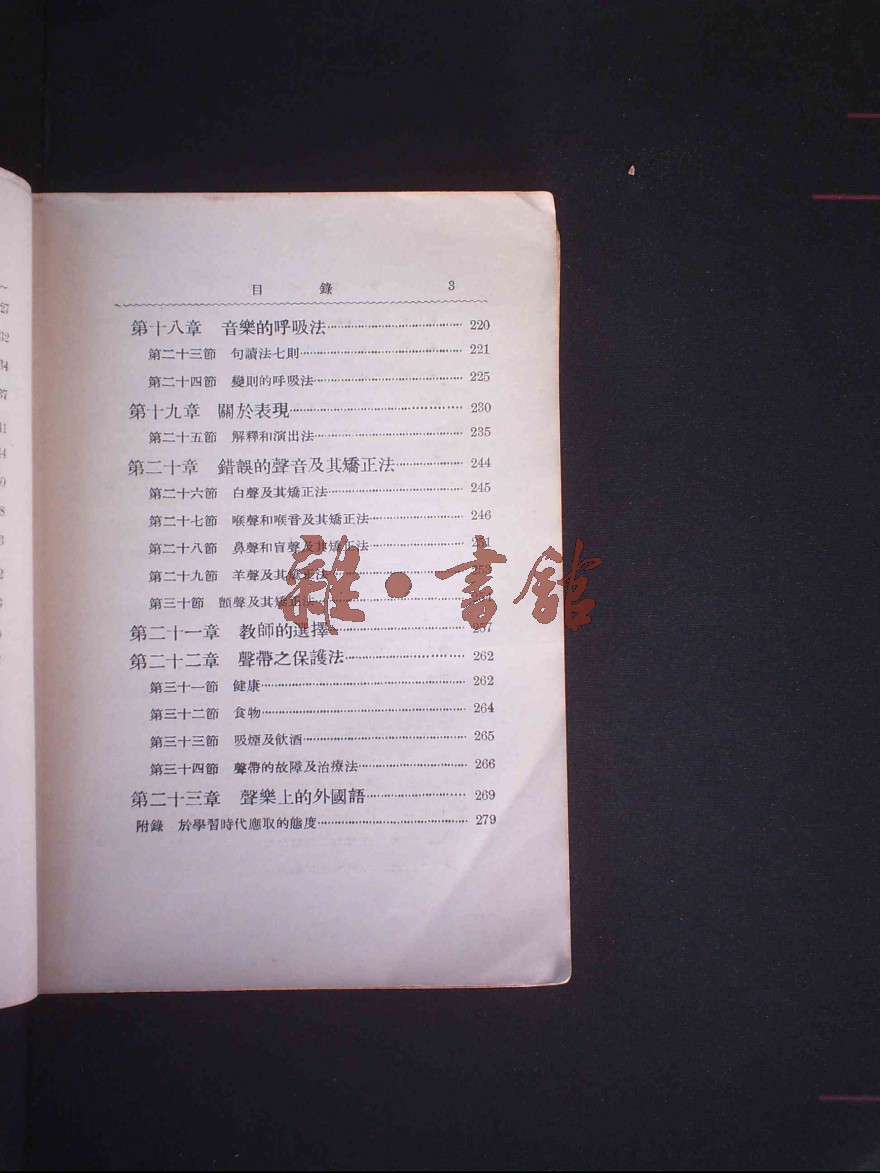 目 錄 3
第十八章 音樂的呼吸法 220
第二十三節 句讀法七則 221
第二十四節 變則的呼吸法 225
第十九章 關於表現 230
第二十五節 解釋和演出法 235
第二十章 錯誤的聲音及其矯正法 244
第二十六節 白聲及其矯正法 245
第二十七節 喉聲和喉音及其矯正法 246
第二十八節 鼻聲和盲聲及其矯正法
第二十九節 羊聲及其矯正法 253
第三十節 顫聲及其矯正法
第二十一章 教師的選擇 257
第二十二章 聲帶之保護法 262
第三十一節 健康 262
第三十二節 食物 264
第三十三節 吸煙及飲酒 265
第三十四節 聲帶的故障及治療法 266
第二十三章 聲樂上的外國語 269
附錄 於學習時代應取的態度 279
雜·書館